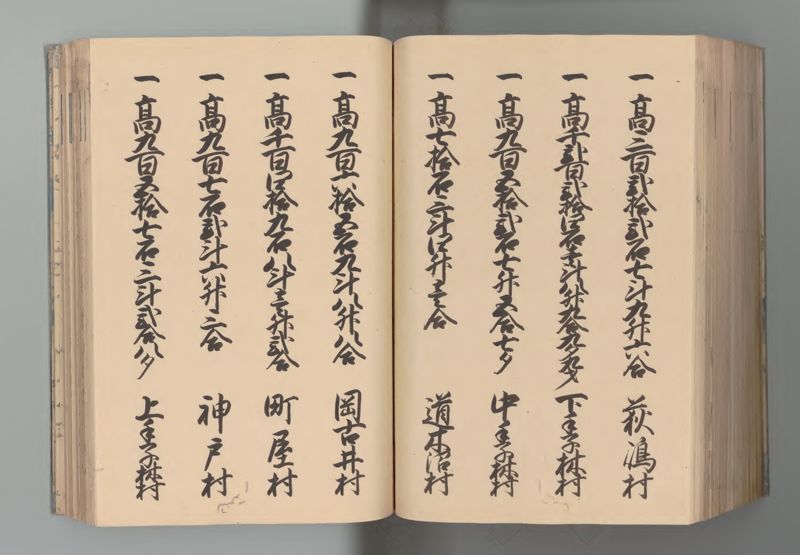 一高三百弐拾弐石七斗九升六合 荻嶋村
一高千弐百弐拾四石壱斗八升九合九夕 下手子林村
一高九百五拾弐石七升五合七夕 中手子林村
一高七拾石三斗四升壱合 村
一高九百六拾五石九斗八升八合 岡古井村
一高千百四拾九石八斗壱升弐合 町屋村
一高九百七石弐斗六升三合 神戸村
一高九百五拾七石三斗弐合八夕 上手子林村